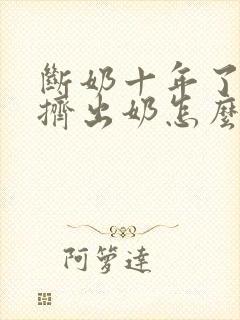 斷奶十年了
擠出奶怎麼
阿箩達